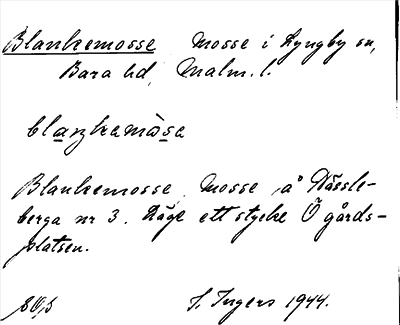 Blankemosse Mosse i Lyngby sn,
Bara hd, Malm. l.
blaŋkamòsa
Blankemosse. Mosse å Nässle-
berga nr 3. Låge ett stycke Ö gårds-
platsen.
I. Ingers 1944.